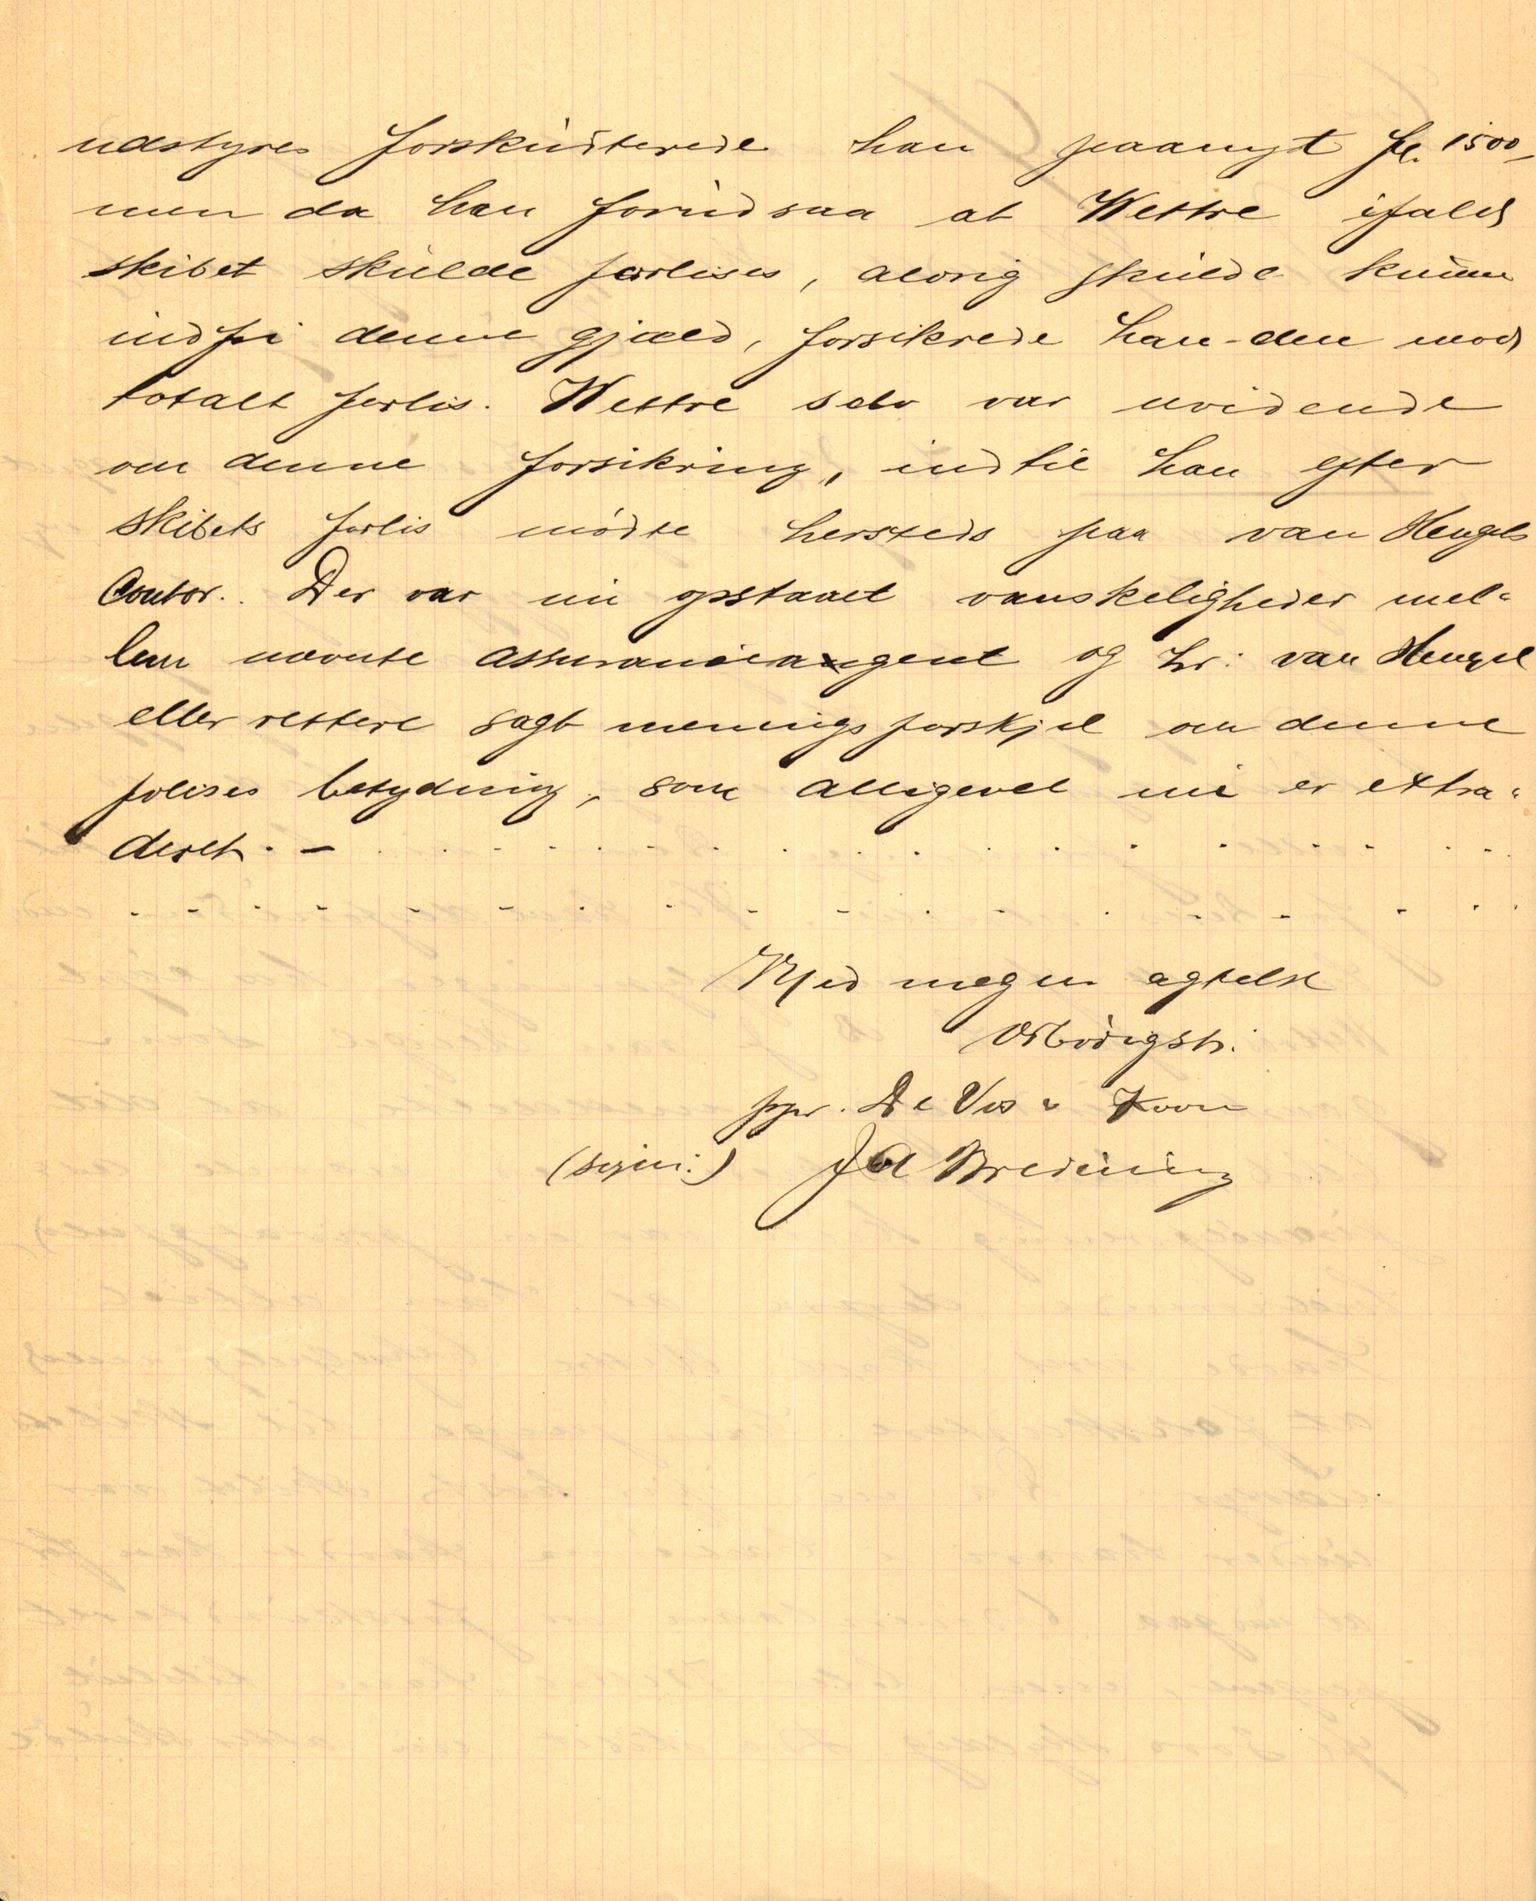 udstyres forskudterede han paanyt fl. 1500,-
men da han forudsaa at Wettre ifald
skibet skulde forlises, aldrig skulde kunne
indfri denne gjæld, forsikrede han den mod
totalt forlis. Wettre selv var uvidende
om denne forsikring, indtil han efter
skibets forlis mødte hersteds paa van Hengels
Contor. Der var nu opstaaet vanskeligheder mel-
lem nævnte assuranceagent og hr: van Hengel
eller rettere sagt meningsforskjel om denne
polises betydning, som alligevel nu er extra-
deret. —
Med megen agtelse
Ærbödigst.
ppr. De Vos & Zoon
(sign:) J A Breuning